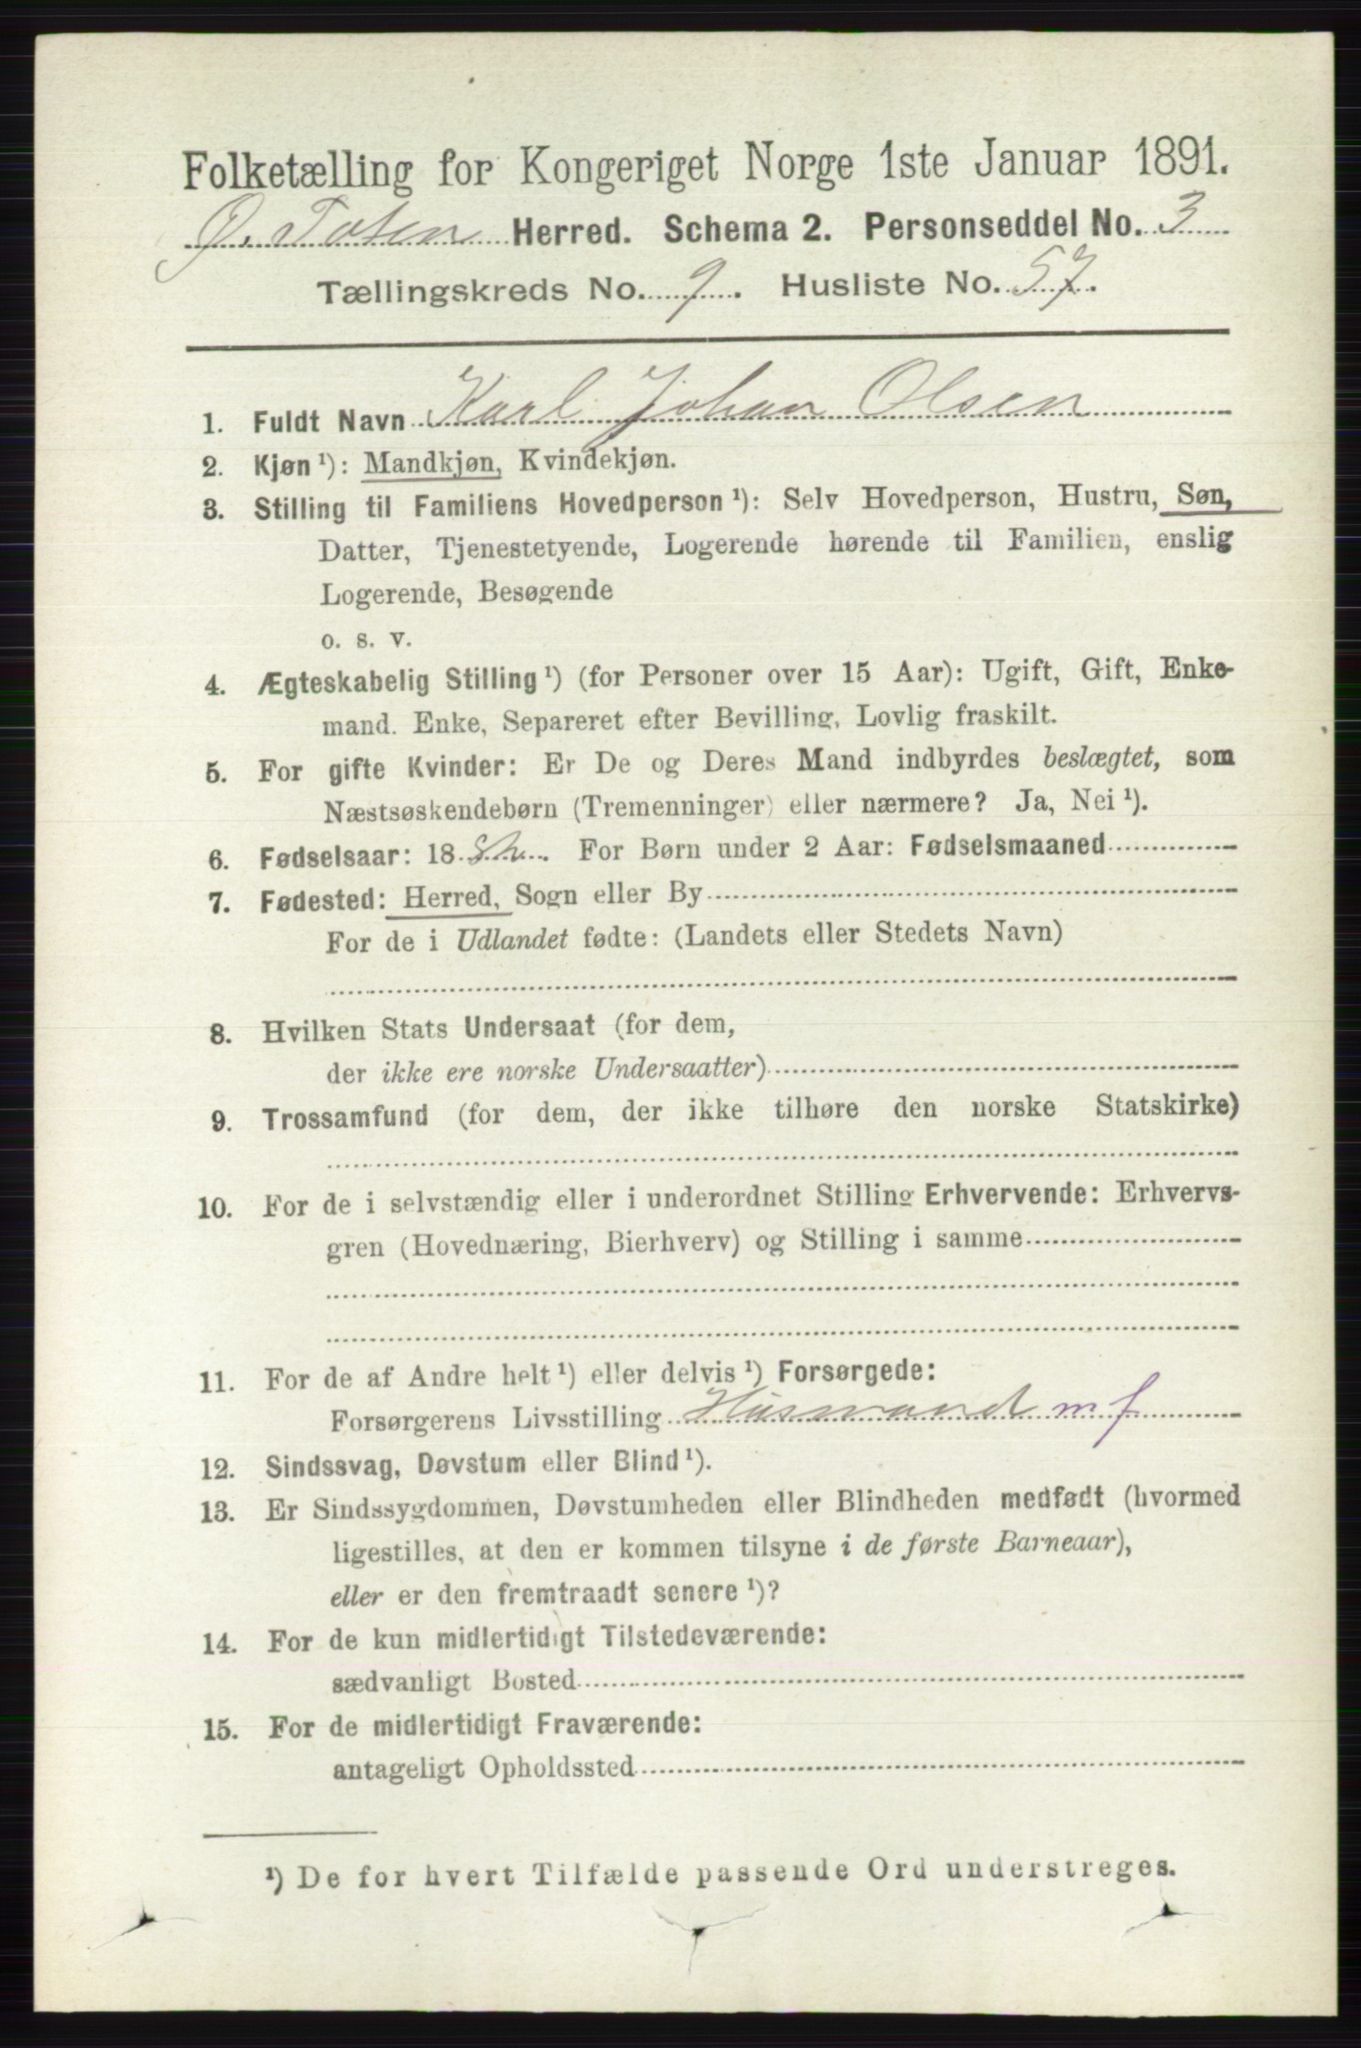 Folketælling for Kongeriget Norge 1ste Januar 1891.
Ø. Toten Herred. Schema 2. Personseddel No. 3
Tællingskreds No. 9. Husliste No. 57.
1. Fuldt Navn Karl Johan Olsen
2. Kjøn ¹): Mandkjøn, Kvindekjøn.
3. Stilling til Familiens Hovedperson ¹): Selv Hovedperson, Hustru, Søn,
Datter, Tjenestetyende, Logerende hørende til Familien, enslig
Logerende, Besøgende
o. s. v.
4. Ægteskabelig Stilling ¹) (for Personer over 15 Aar): Ugift, Gift, Enke-
mand. Enke, Separeret efter Bevilling, Lovlig fraskilt.
5. For gifte Kvinder: Er De og Deres Mand indbyrdes beslægtet, som
Næstsøskendebørn (Tremenninger) eller nærmere? Ja, Nei ¹).
6. Fødselsaar: 18 For Børn under 2 Aar: Fødselsmaaned
7. Fødested: Herred, Sogn eller By
For de i Udlandet fødte: (Landets eller Stedets Navn)
8. Hvilken Stats Undersaat (for dem,
der ikke ere norske Undersaatter)
9. Trossamfund (for dem, der ikke tilhøre den norske Statskirke)
10. For de i selvstændig eller i underordnet Stilling Erhvervende: Erhvervs-
gren (Hovednæring, Bierhverv) og Stilling i samme
11. For de af Andre helt ¹) eller delvis ¹) Forsørgede:
Forsørgerens Livsstilling Husmand m f
12. Sindssvag, Døvstum eller Blind ¹).
13. Er Sindssygdommen, Døvstumheden eller Blindheden medfødt (hvormed
ligestilles, at den er kommen tilsyne i de første Barneaar),
eller er den fremtraadt senere ¹)?
14. For de kun midlertidigt Tilstedeværende:
sædvanligt Bosted
15. For de midlertidigt Fraværende:
antageligt Opholdssted
¹) De for hvert Tilfælde passende Ord understreges.